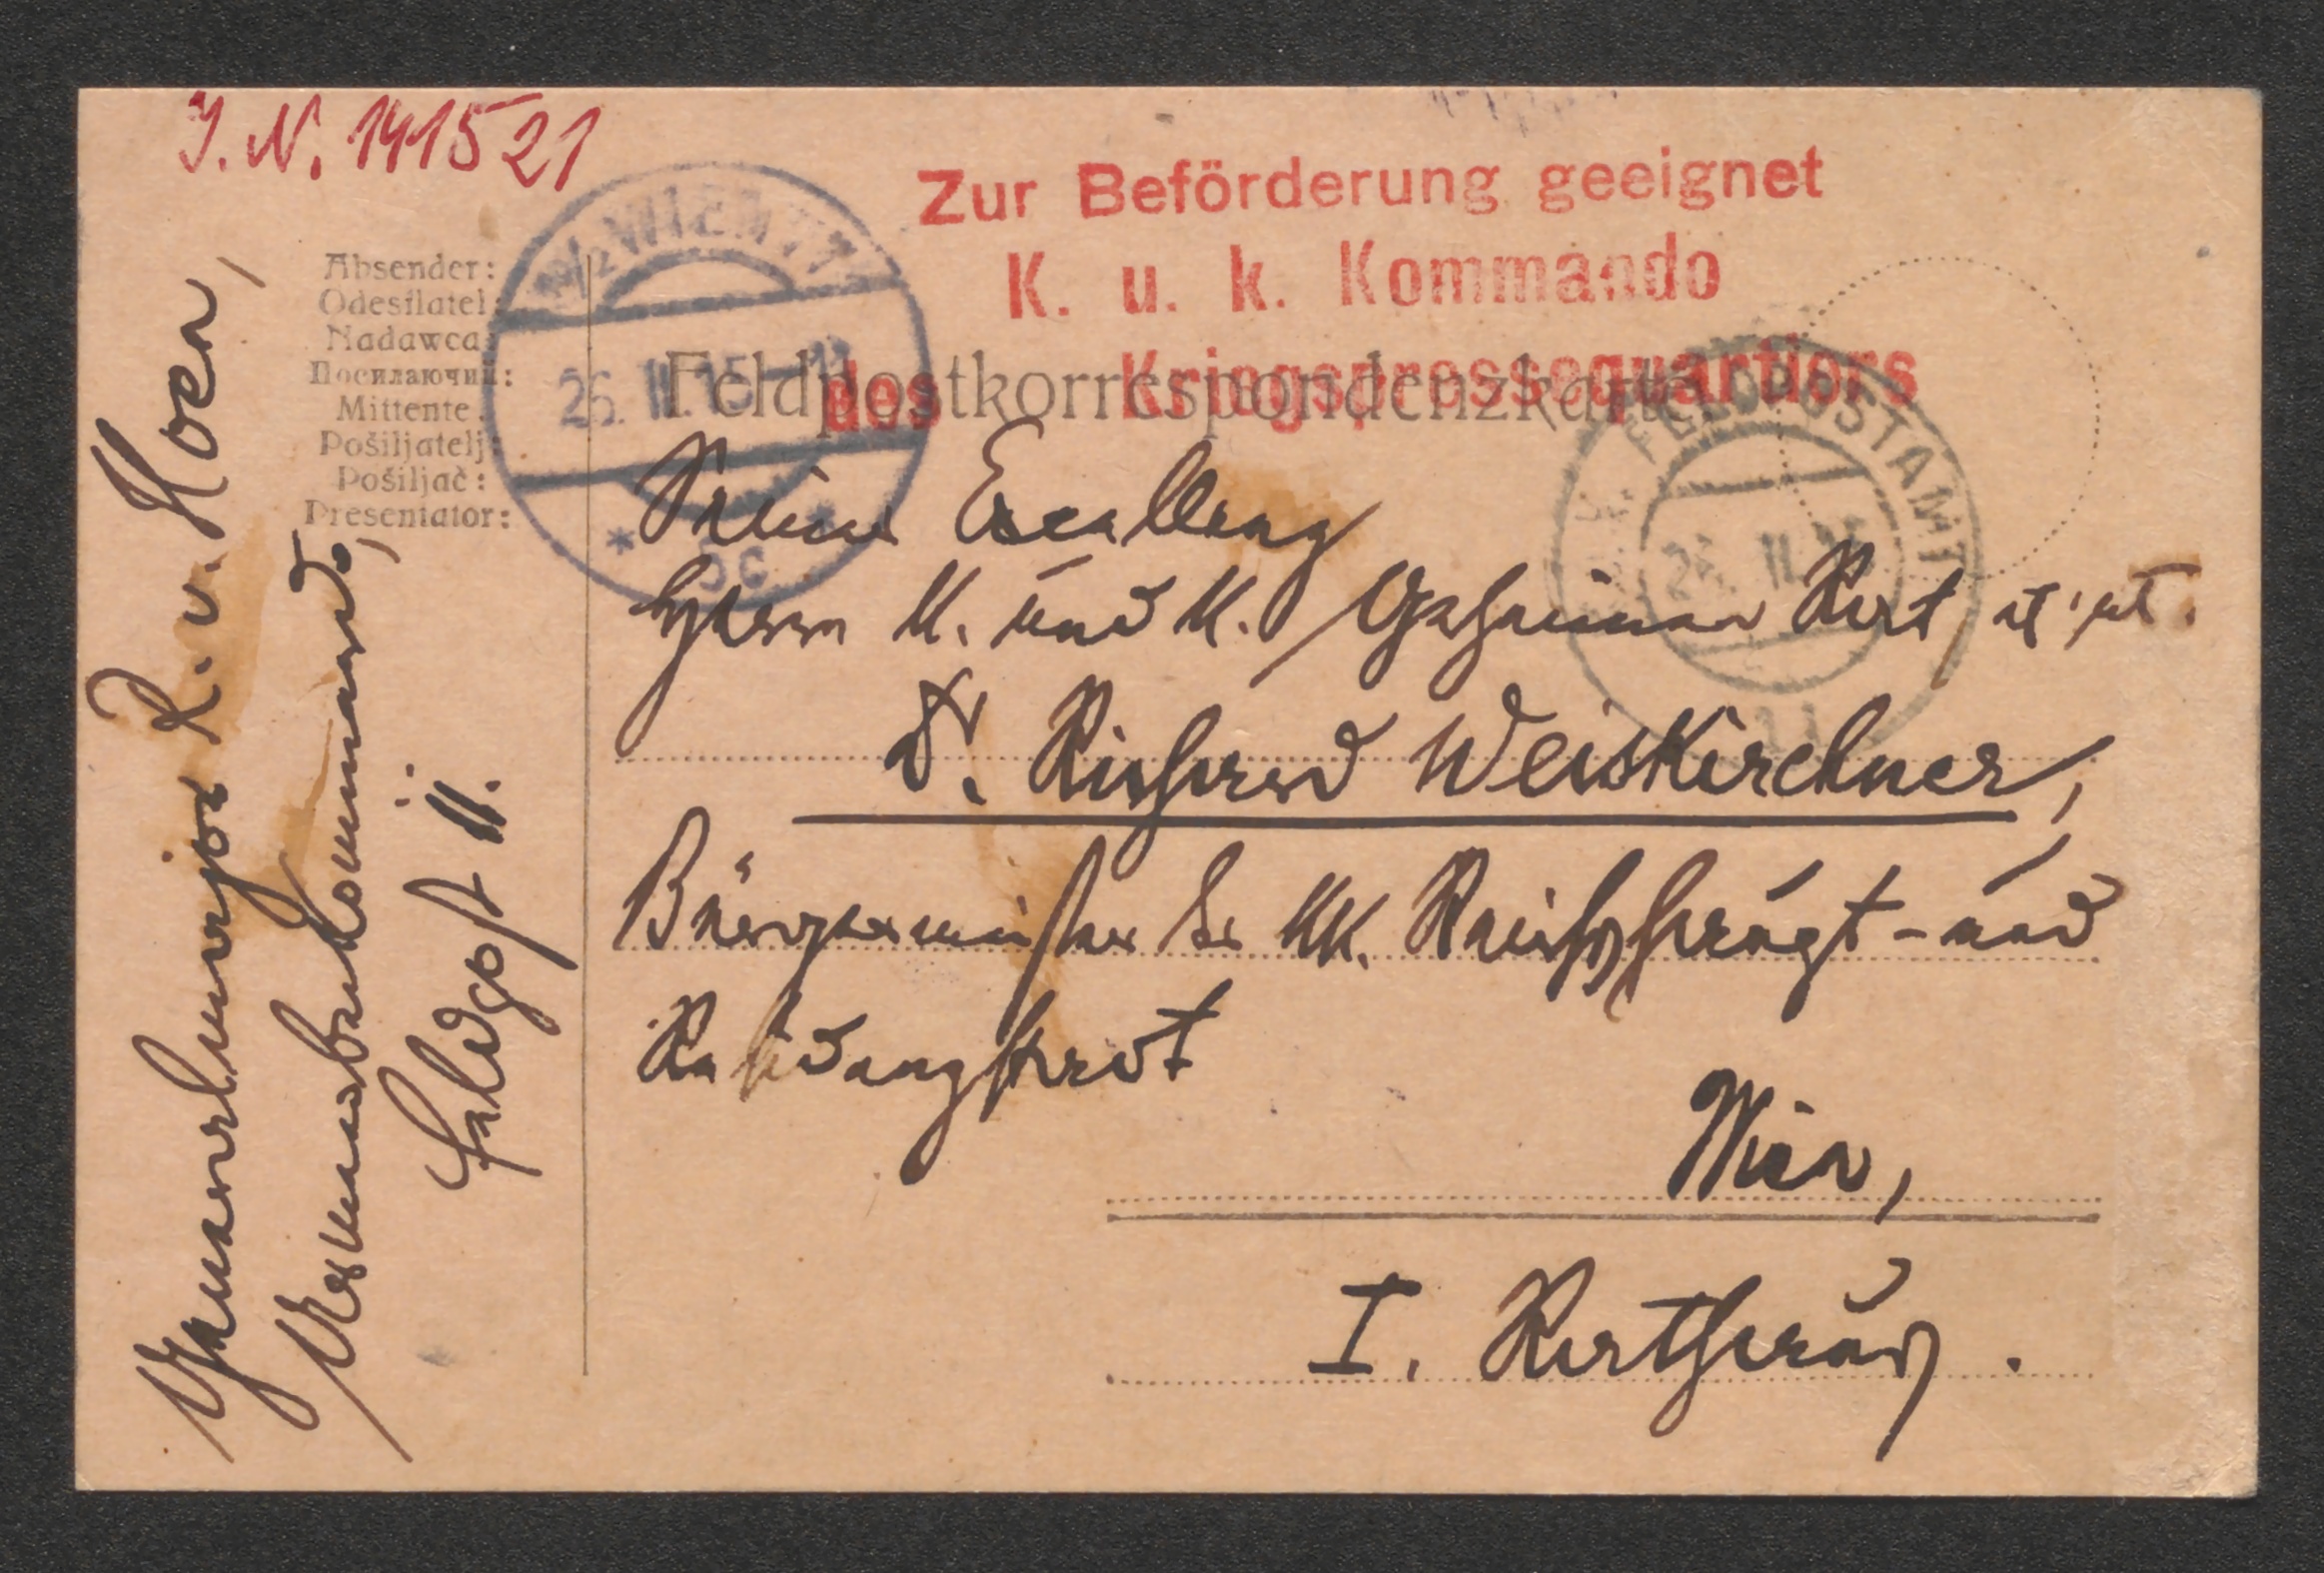 I. N. 141521
Zur Beförderung geeignet
K. u. k. Kommando
des Kriegspressequartiers
Feldpostkorrespondenzkarte
1/1 WIEN 1/1
26. II. 15
* 5c *
K. u. K. FELDPOSTAMT
26. II. 15
11
Absender:
Odesílatel:
Nadawca:
Посилаючий:
Mittente:
Pošiljatelj:
Pošiljač:
Presentator:
Generalmajor R. v. Hoen,
Armeeoberkommando,
Feldpost 11.
Seiner Excellenz
Herrn K. und K. Geheimen Rat, etc.
Dr. Richard Weiskirchner,
Bürgermeister der KK. Reichshaupt- und
Residenzstadt
Wien,
I. Rathaus.